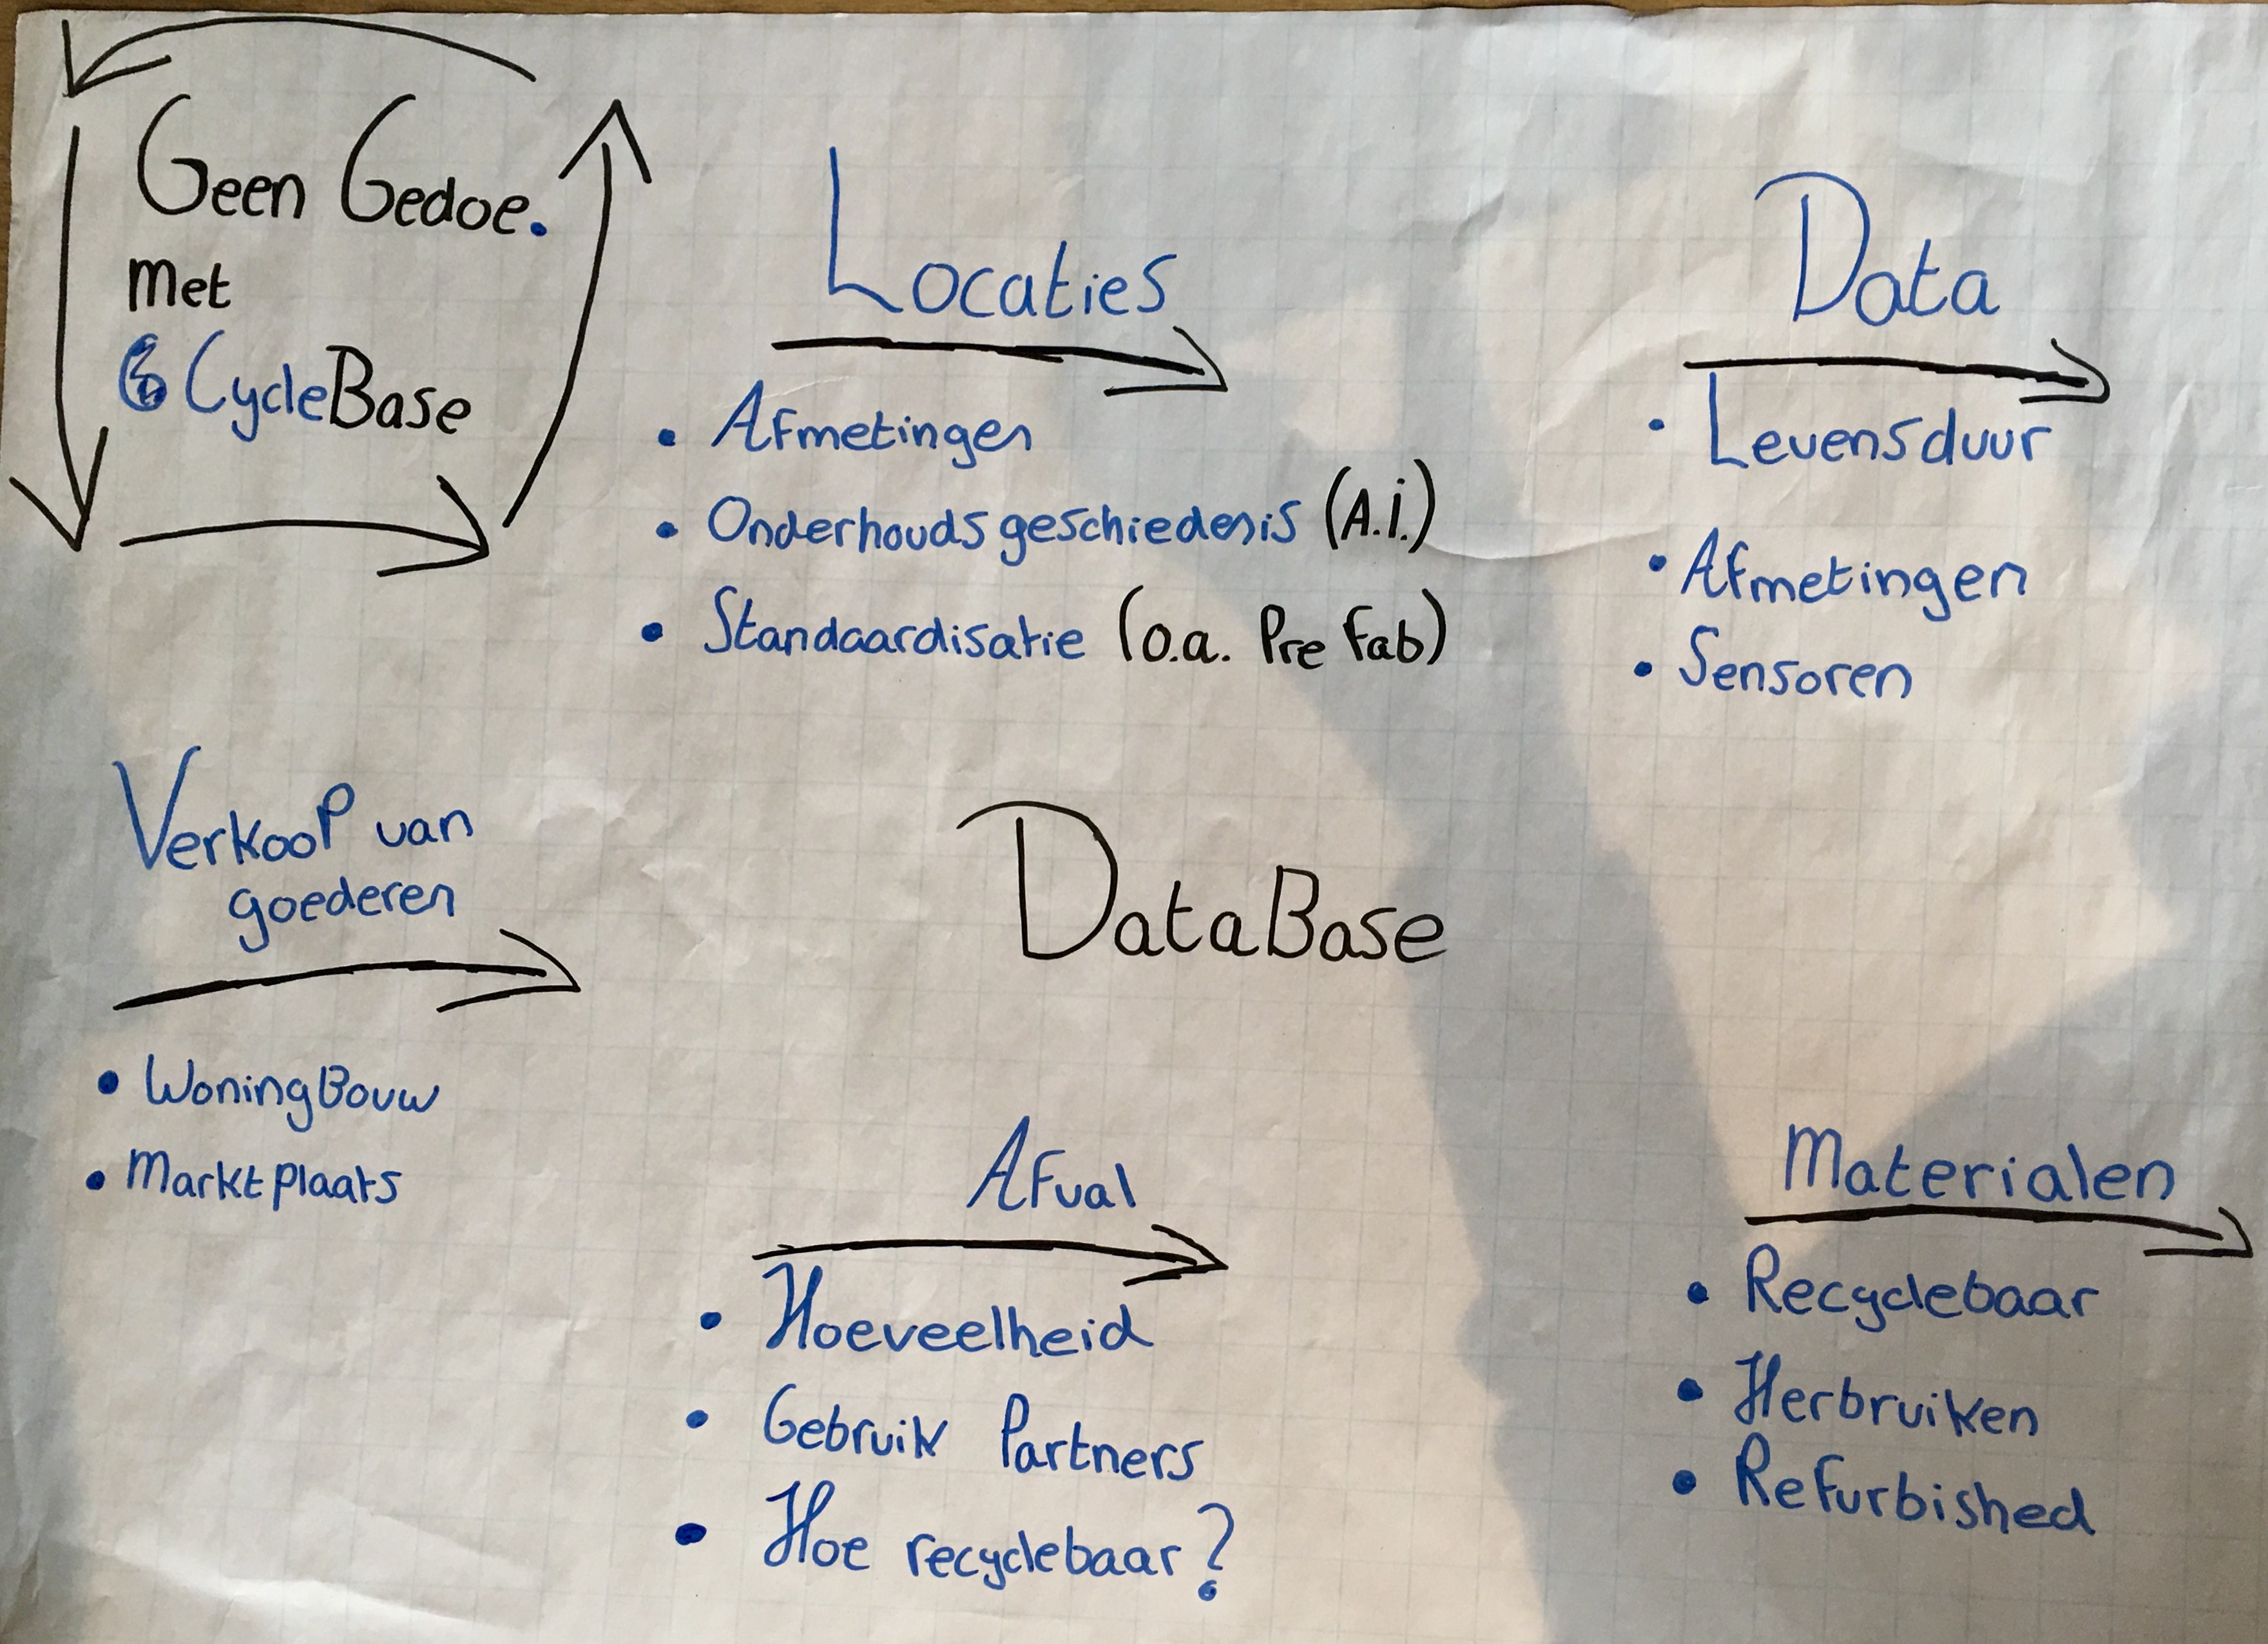 Geen Gedoe.
met
CycleBase
Locaties
• Afmetingen
• Onderhoudsgeschiedenis (A.i.)
• Standaardisatie (o.a. Pre fab)
Data
• Levensduur
• Afmetingen
• Sensoren
Verkoop van
goederen
• WoningBouw
• Marktplaats
DataBase
Afval
• Hoeveelheid
• Gebruik Partners
• Hoe recyclebaar?
Materialen
• Recyclebaar
• Herbruiken
• Refurbished